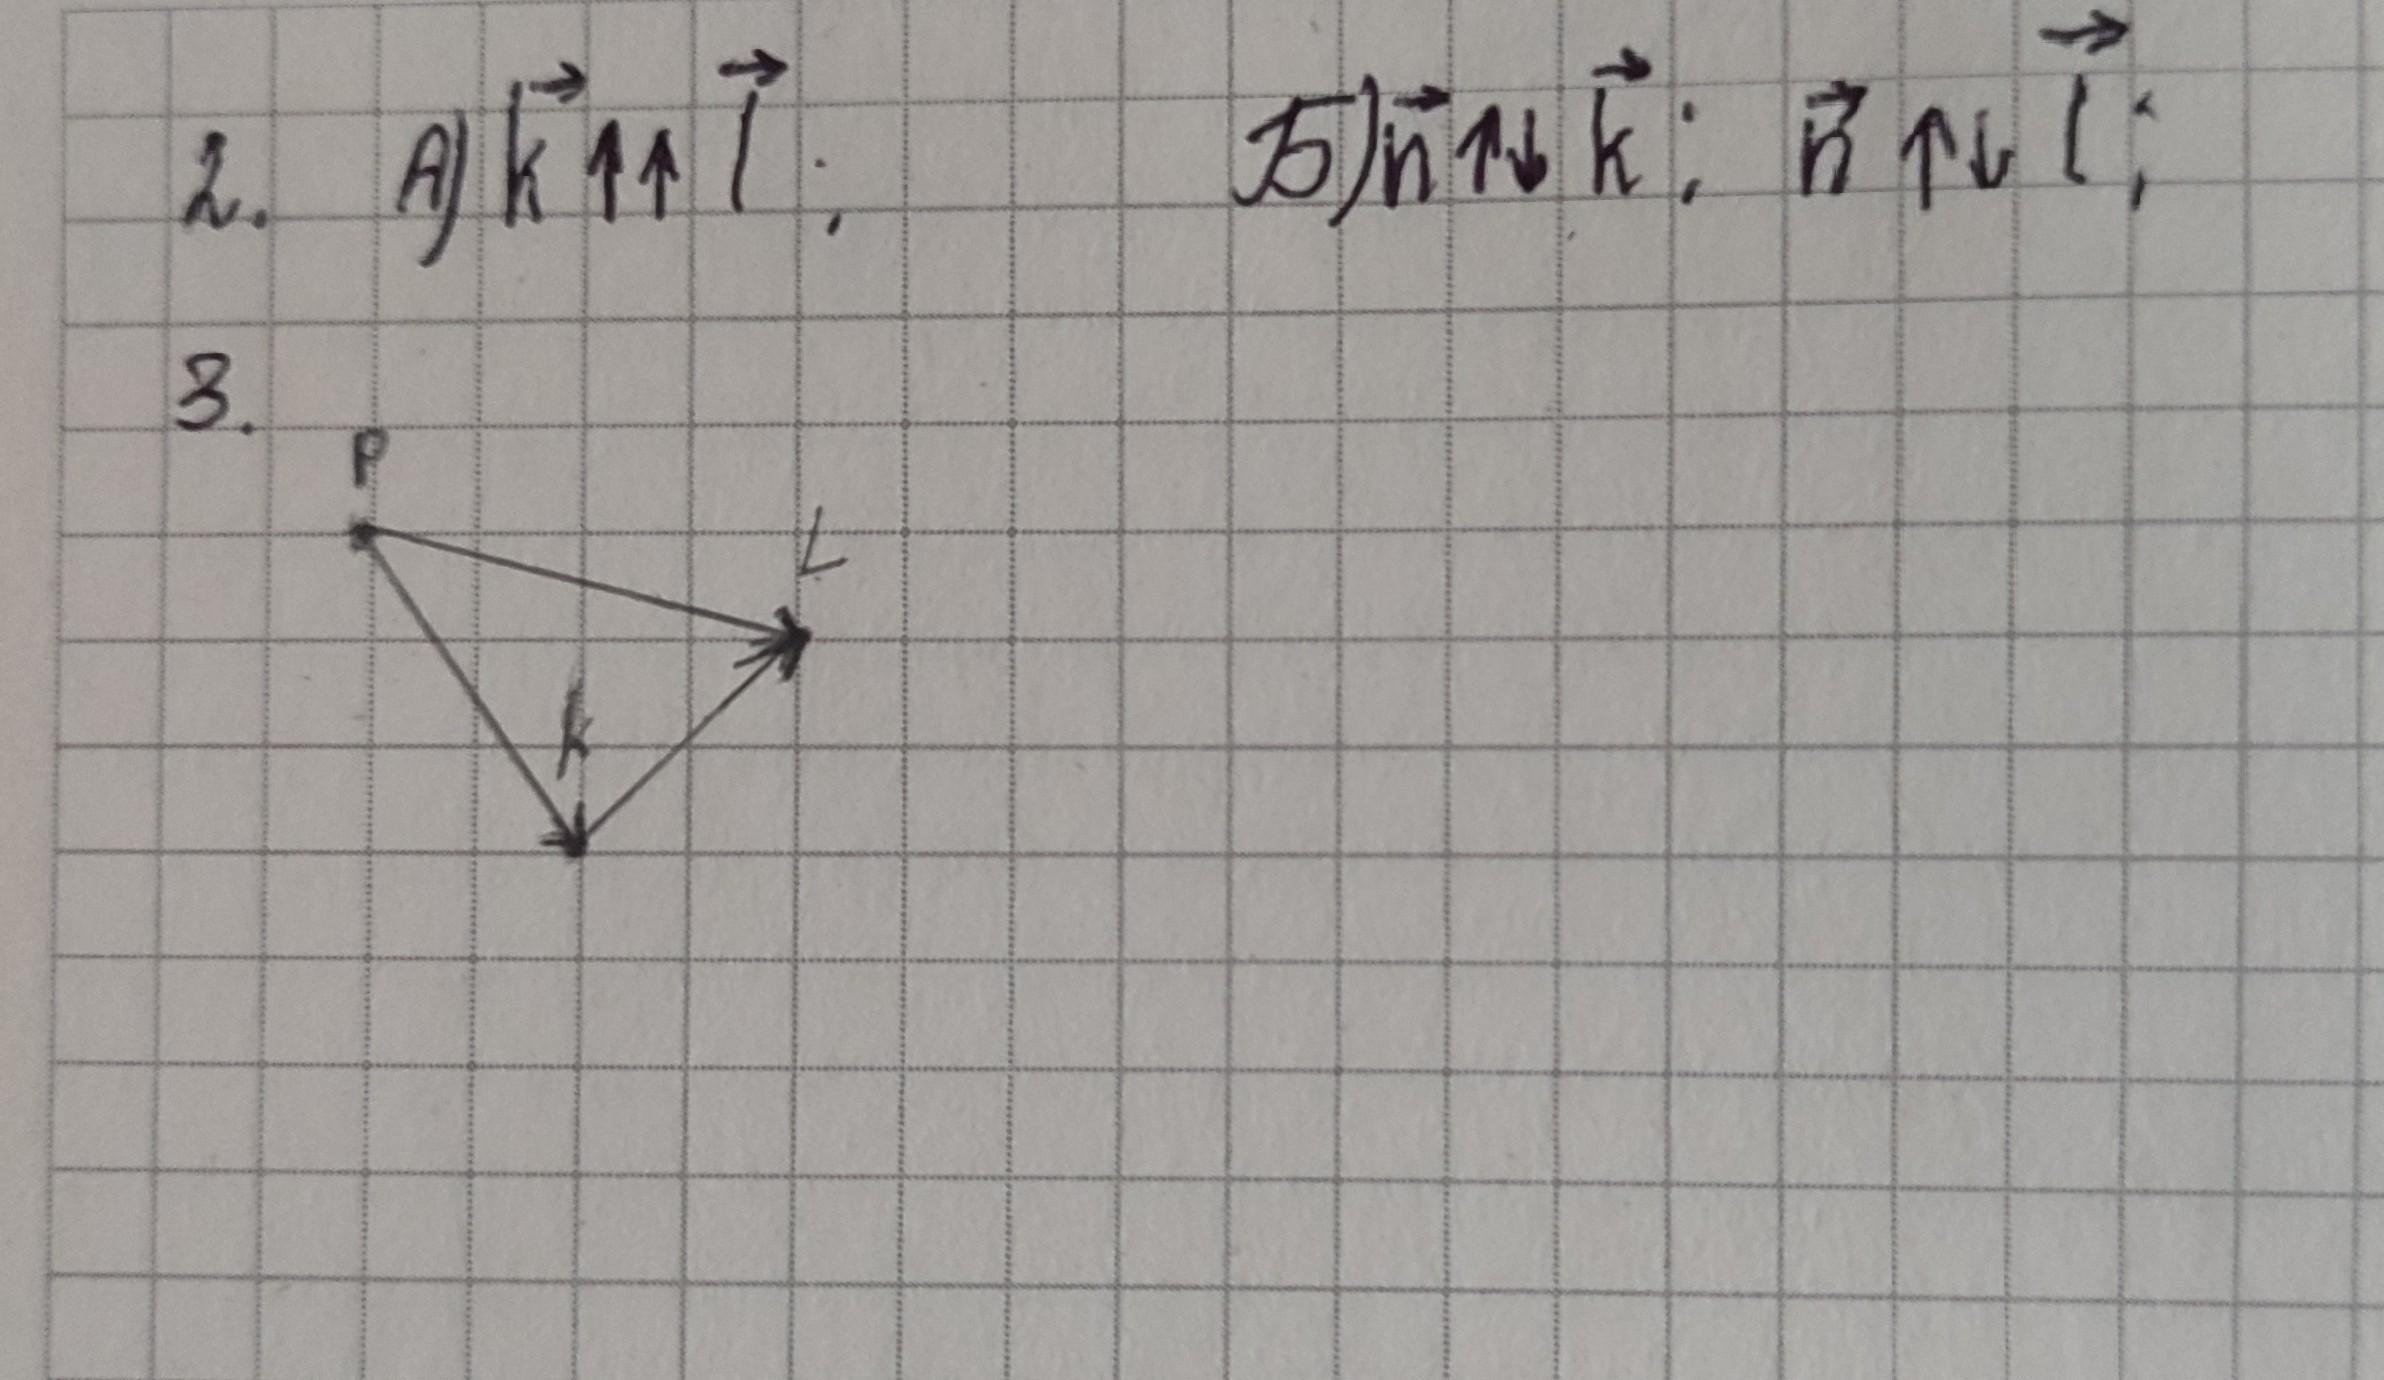 2. А) k⃗ ↑↑ l⃗ ; Б) n⃗ ↑↓ k⃗ ; n⃗ ↑↓ l⃗ ;
3.
P
L
k